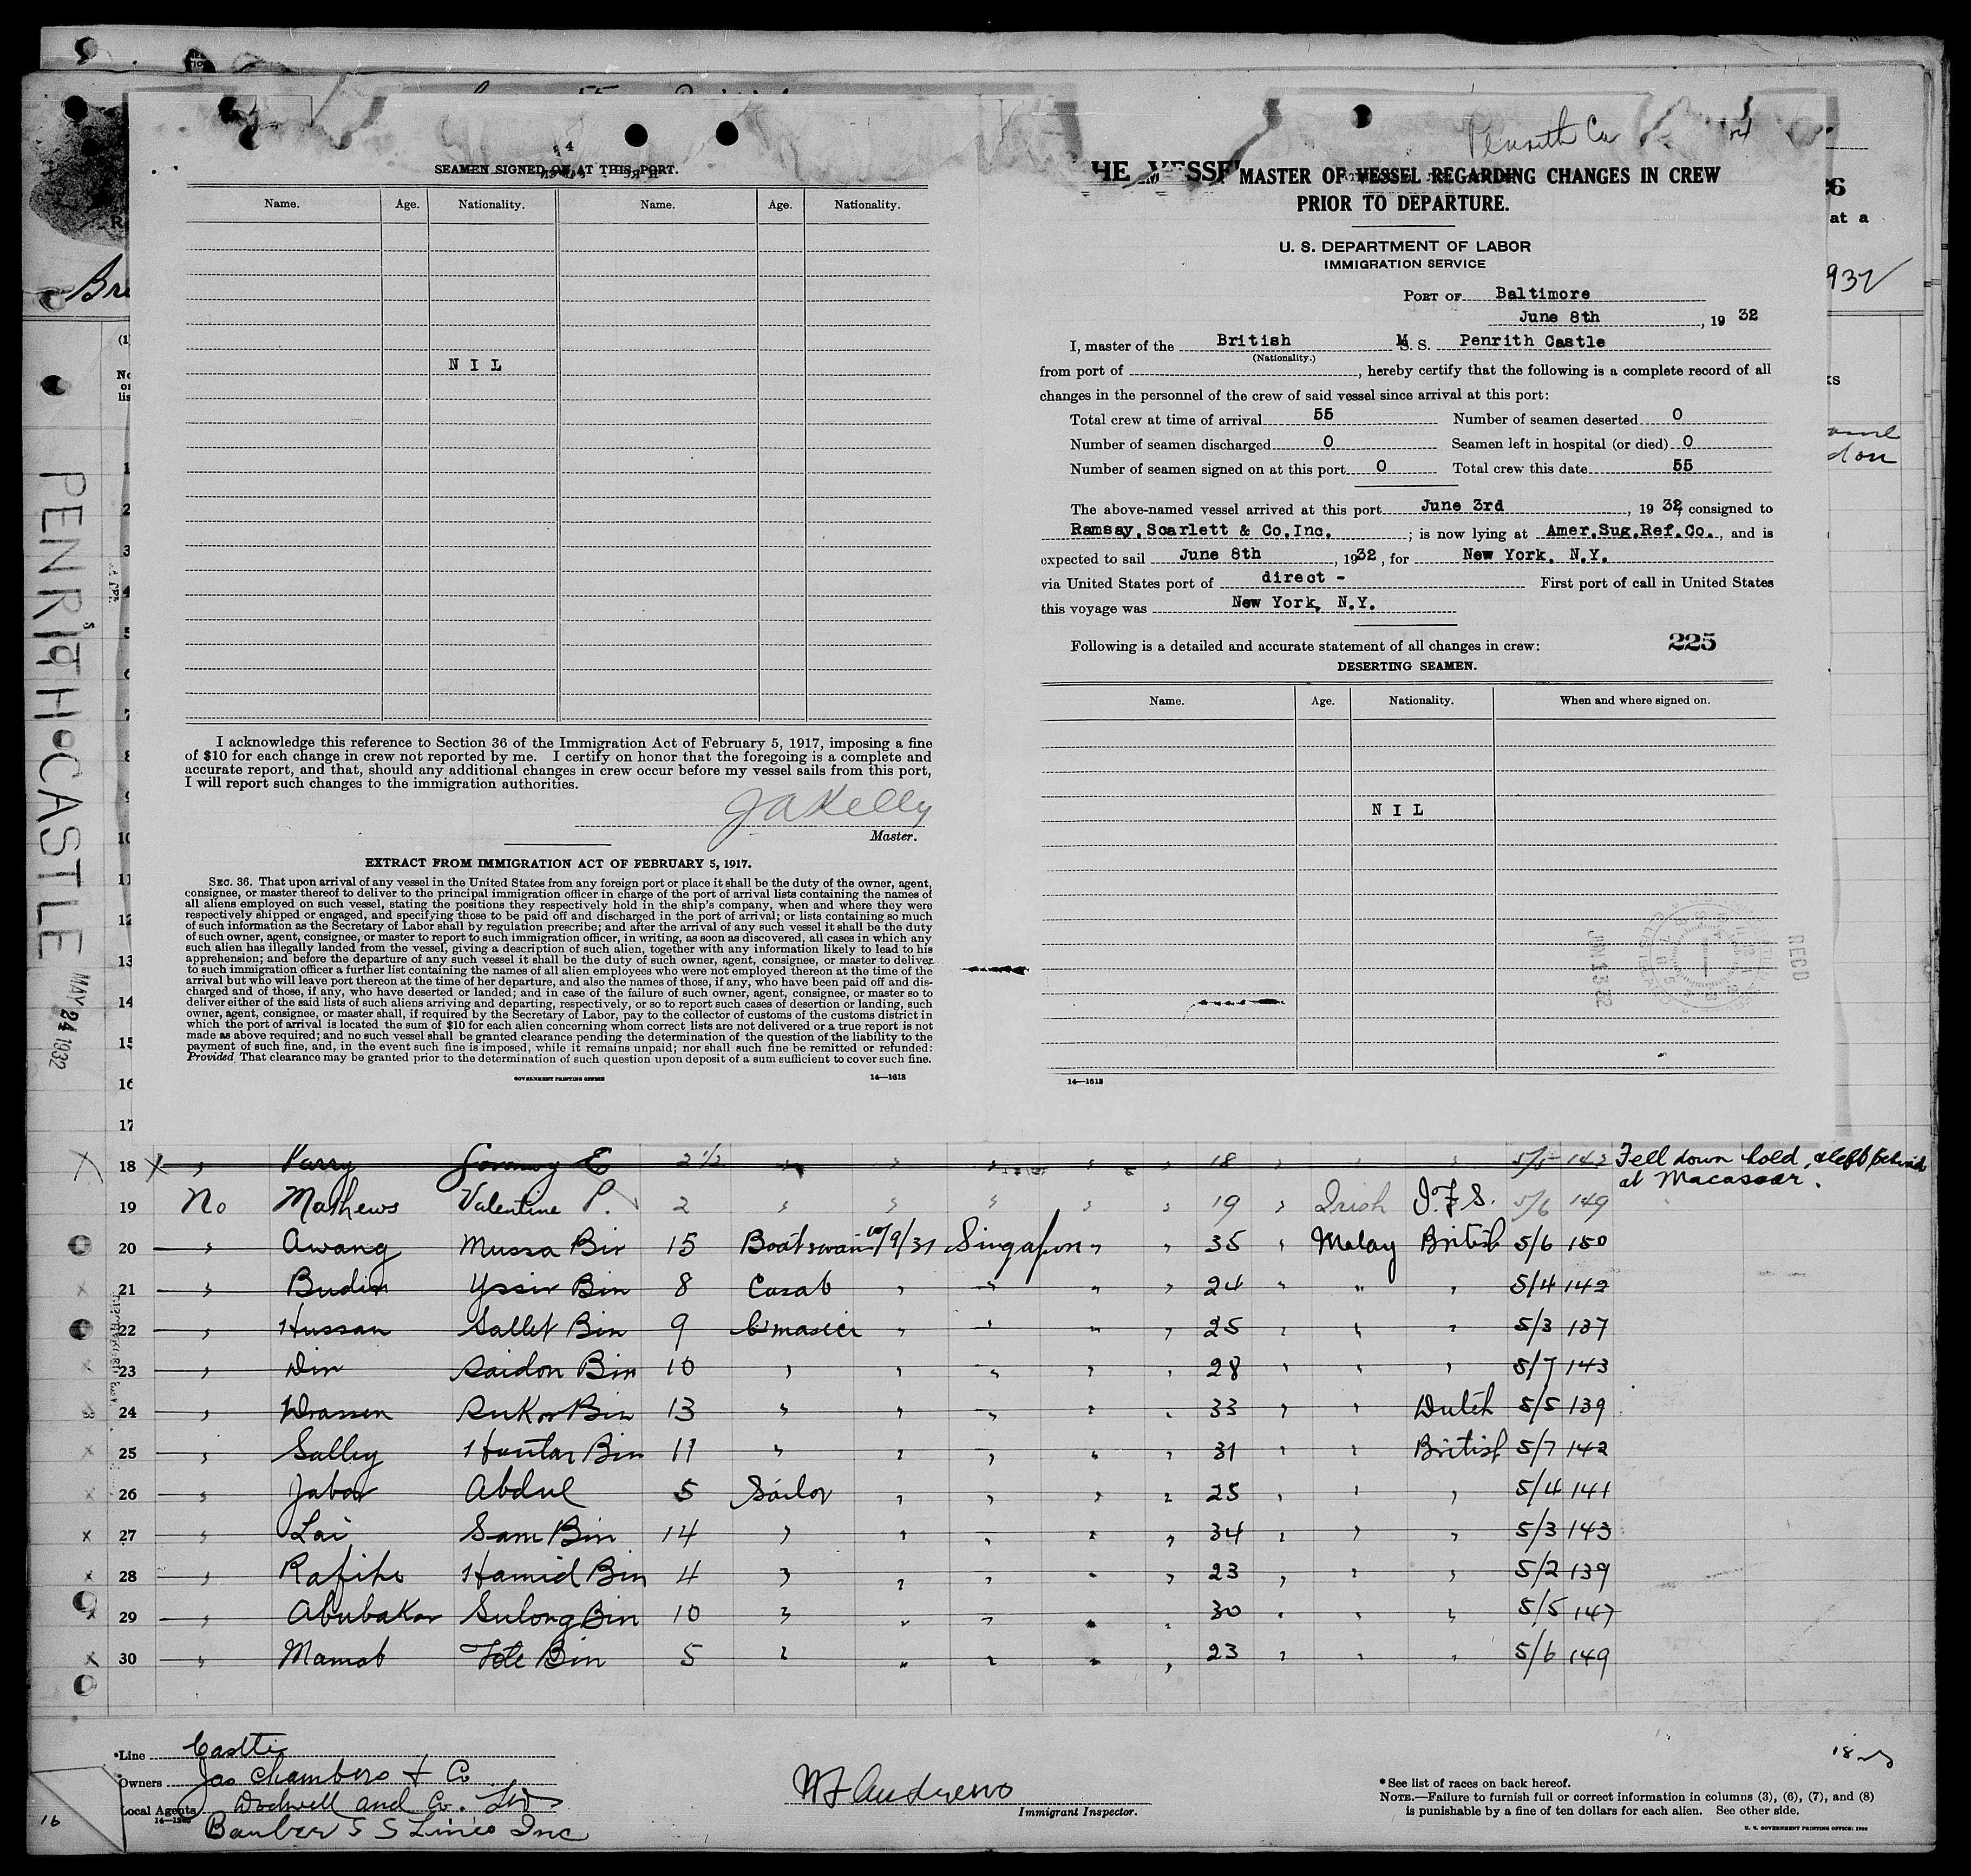 SEAMEN SIGNED ON AT THIS PORT.
Name. Age. Nationality. Name. Age. Nationality.
N I L
I acknowledge this reference to Section 36 of the Immigration Act of February 5, 1917, imposing a fine
of $10 for each change in crew not reported by me. I certify on honor that the foregoing is a complete and
accurate report, and that, should any additional changes in crew occur before my vessel sails from this port,
I will report such changes to the immigration authorities.
JAKelly
Master.
EXTRACT FROM IMMIGRATION ACT OF FEBRUARY 5, 1917.
SEC. 36. That upon arrival of any vessel in the United States from any foreign port or place it shall be the duty of the owner, agent,
consignee, or master thereof to deliver to the principal immigration officer in charge of the port of arrival lists containing the names of
all aliens employed on such vessel, stating the positions they respectively hold in the ship's company, when and where they were
respectively shipped or engaged, and specifying those to be paid off and discharged in the port of arrival; or lists containing so much
of such information as the Secretary of Labor shall by regulation prescribe; and after the arrival of any such vessel it shall be the duty
of such owner, agent, consignee, or master to report to such immigration officer, in writing, as soon as discovered, all cases in which any
such alien has illegally landed from the vessel, giving a description of such alien, together with any information likely to lead to his
apprehension; and before the departure of any such vessel it shall be the duty of such owner, agent, consignee, or master to deliver
to such immigration officer a further list containing the names of all alien employees who were not employed thereon at the time of the
arrival but who will leave port thereon at the time of her departure, and also the names of those, if any, who have been paid off and dis-
charged and of those, if any, who have deserted or landed; and in case of the failure of such owner, agent, consignee, or master so to
deliver either of the said lists of such aliens arriving and departing, respectively, or so to report such cases of desertion or landing, such
owner, agent, consignee, or master shall, if required by the Secretary of Labor, pay to the collector of customs of the customs district in
which the port of arrival is located the sum of $10 for each alien concerning whom correct lists are not delivered or a true report is not
made as above required; and no such vessel shall be granted clearance pending the determination of the question of the liability to the
payment of such fine, and, in the event such fine is imposed, while it remains unpaid; nor shall such fine be remitted or refunded:
Provided, That clearance may be granted prior to the determination of such question upon deposit of a sum sufficient to cover such fine.
GOVERNMENT PRINTING OFFICE 14—1613
Penrith Ca
MASTER OF VESSEL REGARDING CHANGES IN CREW
PRIOR TO DEPARTURE.
U. S. DEPARTMENT OF LABOR
IMMIGRATION SERVICE
PORT OF Baltimore
June 8th, 19 32
I, master of the British M S. S. Penrith Castle
(Nationality.)
from port of , hereby certify that the following is a complete record of all
changes in the personnel of the crew of said vessel since arrival at this port:
Total crew at time of arrival 55 Number of seamen deserted 0
Number of seamen discharged 0 Seamen left in hospital (or died) 0
Number of seamen signed on at this port 0 Total crew this date 55
The above-named vessel arrived at this port June 3rd, 19 32, consigned to
Ramsay.Scarlett & Co.Inc. ; is now lying at Amer.Sug.Ref.Co., and is
expected to sail June 8th, 1932, for New York. N.Y.
via United States port of direct - First port of call in United States
this voyage was New York, N.Y.
Following is a detailed and accurate statement of all changes in crew: 225
DESERTING SEAMEN.
Name. Age. Nationality. When and where signed on.
N I L
RECD
14—1613
PENRITH CASTLE MAY 24 1932
18 Parry E 2 1/2 18 Fell down hold, & left behind
at Macassar.
19 No Mathews Valentine P. 2 19 Irish I.F.S. 5/6 149
20 Awang Mussa Bin 15 Boatswain 10/9/31 Singapore 35 Malay British 5/6 150
21 Budin Yssin Bin 8 Casab 24 5/4 142
22 Hussan Sallet Bin 9 25 5/3 137
23 Din Saidon Bin 10 28 5/7 143
24 Sukor Bin 13 33 Dutch 5/5 139
25 Salley Huntar Bin 11 31 British 5/7 142
26 Jabar Abdul 5 Sailor 25 5/4 141
27 Lai Sam Bin 14 34 5/3 143
28 Hamid Bin 4 23 5/2 139
29 Abubakar Sulong Bin 10 30 5/5 147
30 Mamat Bin 5 23 5/6 149
*Line Castle
Owners Jas Chambers & Co
Local Agents Dodwell and Co. Ltd
Barber S S Lines Inc
Immigrant Inspector.
* See list of races on back hereof.
NOTE.—Failure to furnish full or correct information in columns (3), (6), (7), and (8)
is punishable by a fine of ten dollars for each alien. See other side.
U. S. GOVERNMENT PRINTING OFFICE: 1930
16